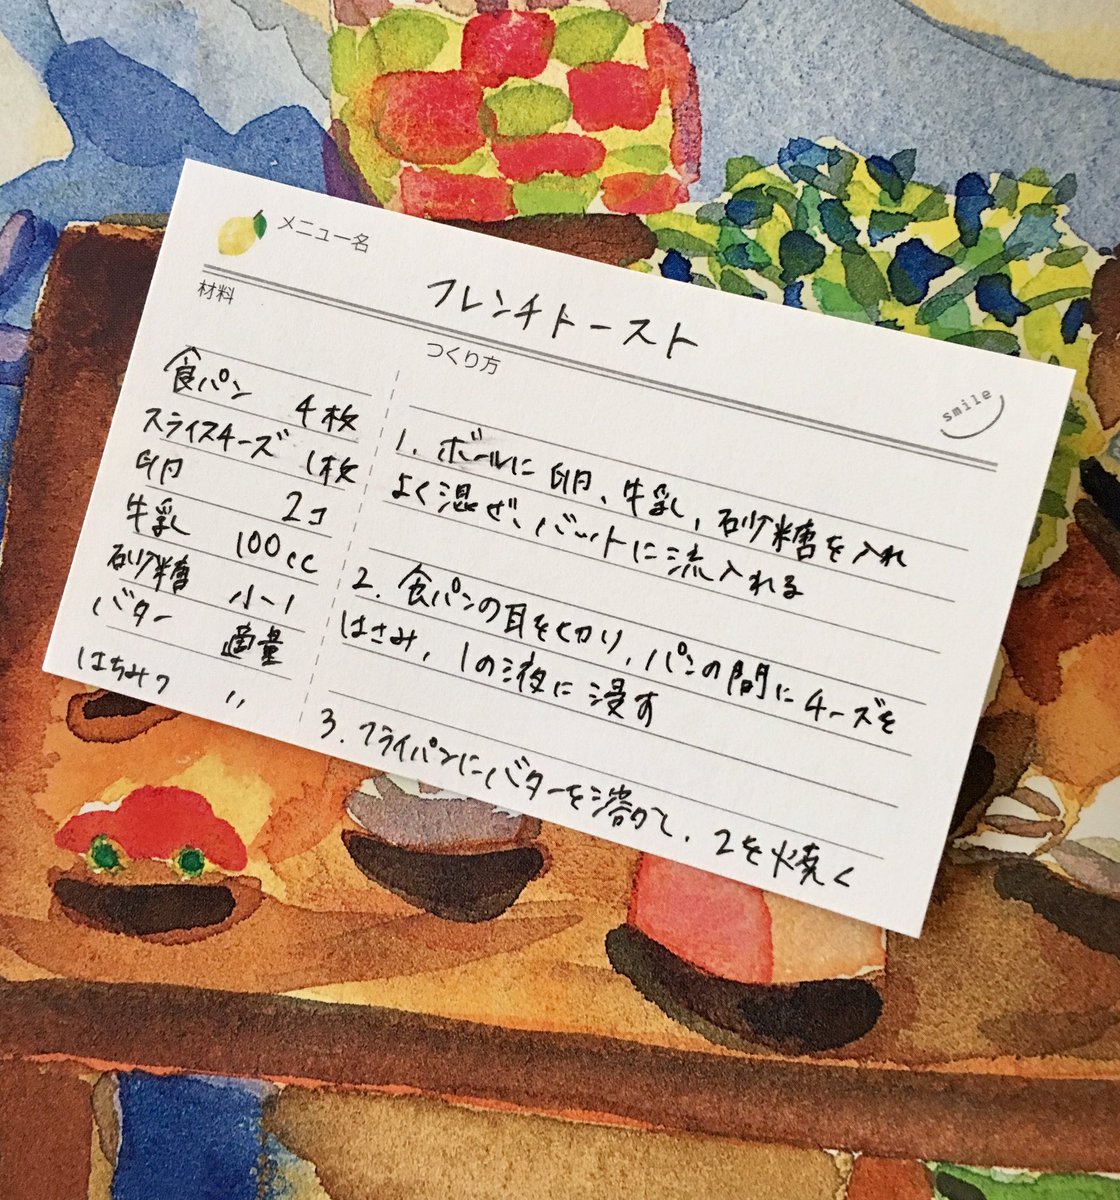 メニュー名
フレンチトースト
smile
材料
食パン 4枚
スライスチーズ 1枚
卵 2コ
牛乳 100cc
砂糖 小一1
バター 適量
はちみつ 〃
つくり方
1. ボールに卵、牛乳、砂糖を入れ
よく混ぜ、バットに流入れる
2. 食パンの耳を切り、パンの間にチーズを
はさみ、1の液に浸す
3. フライパンにバターを溶かして、2を焼く